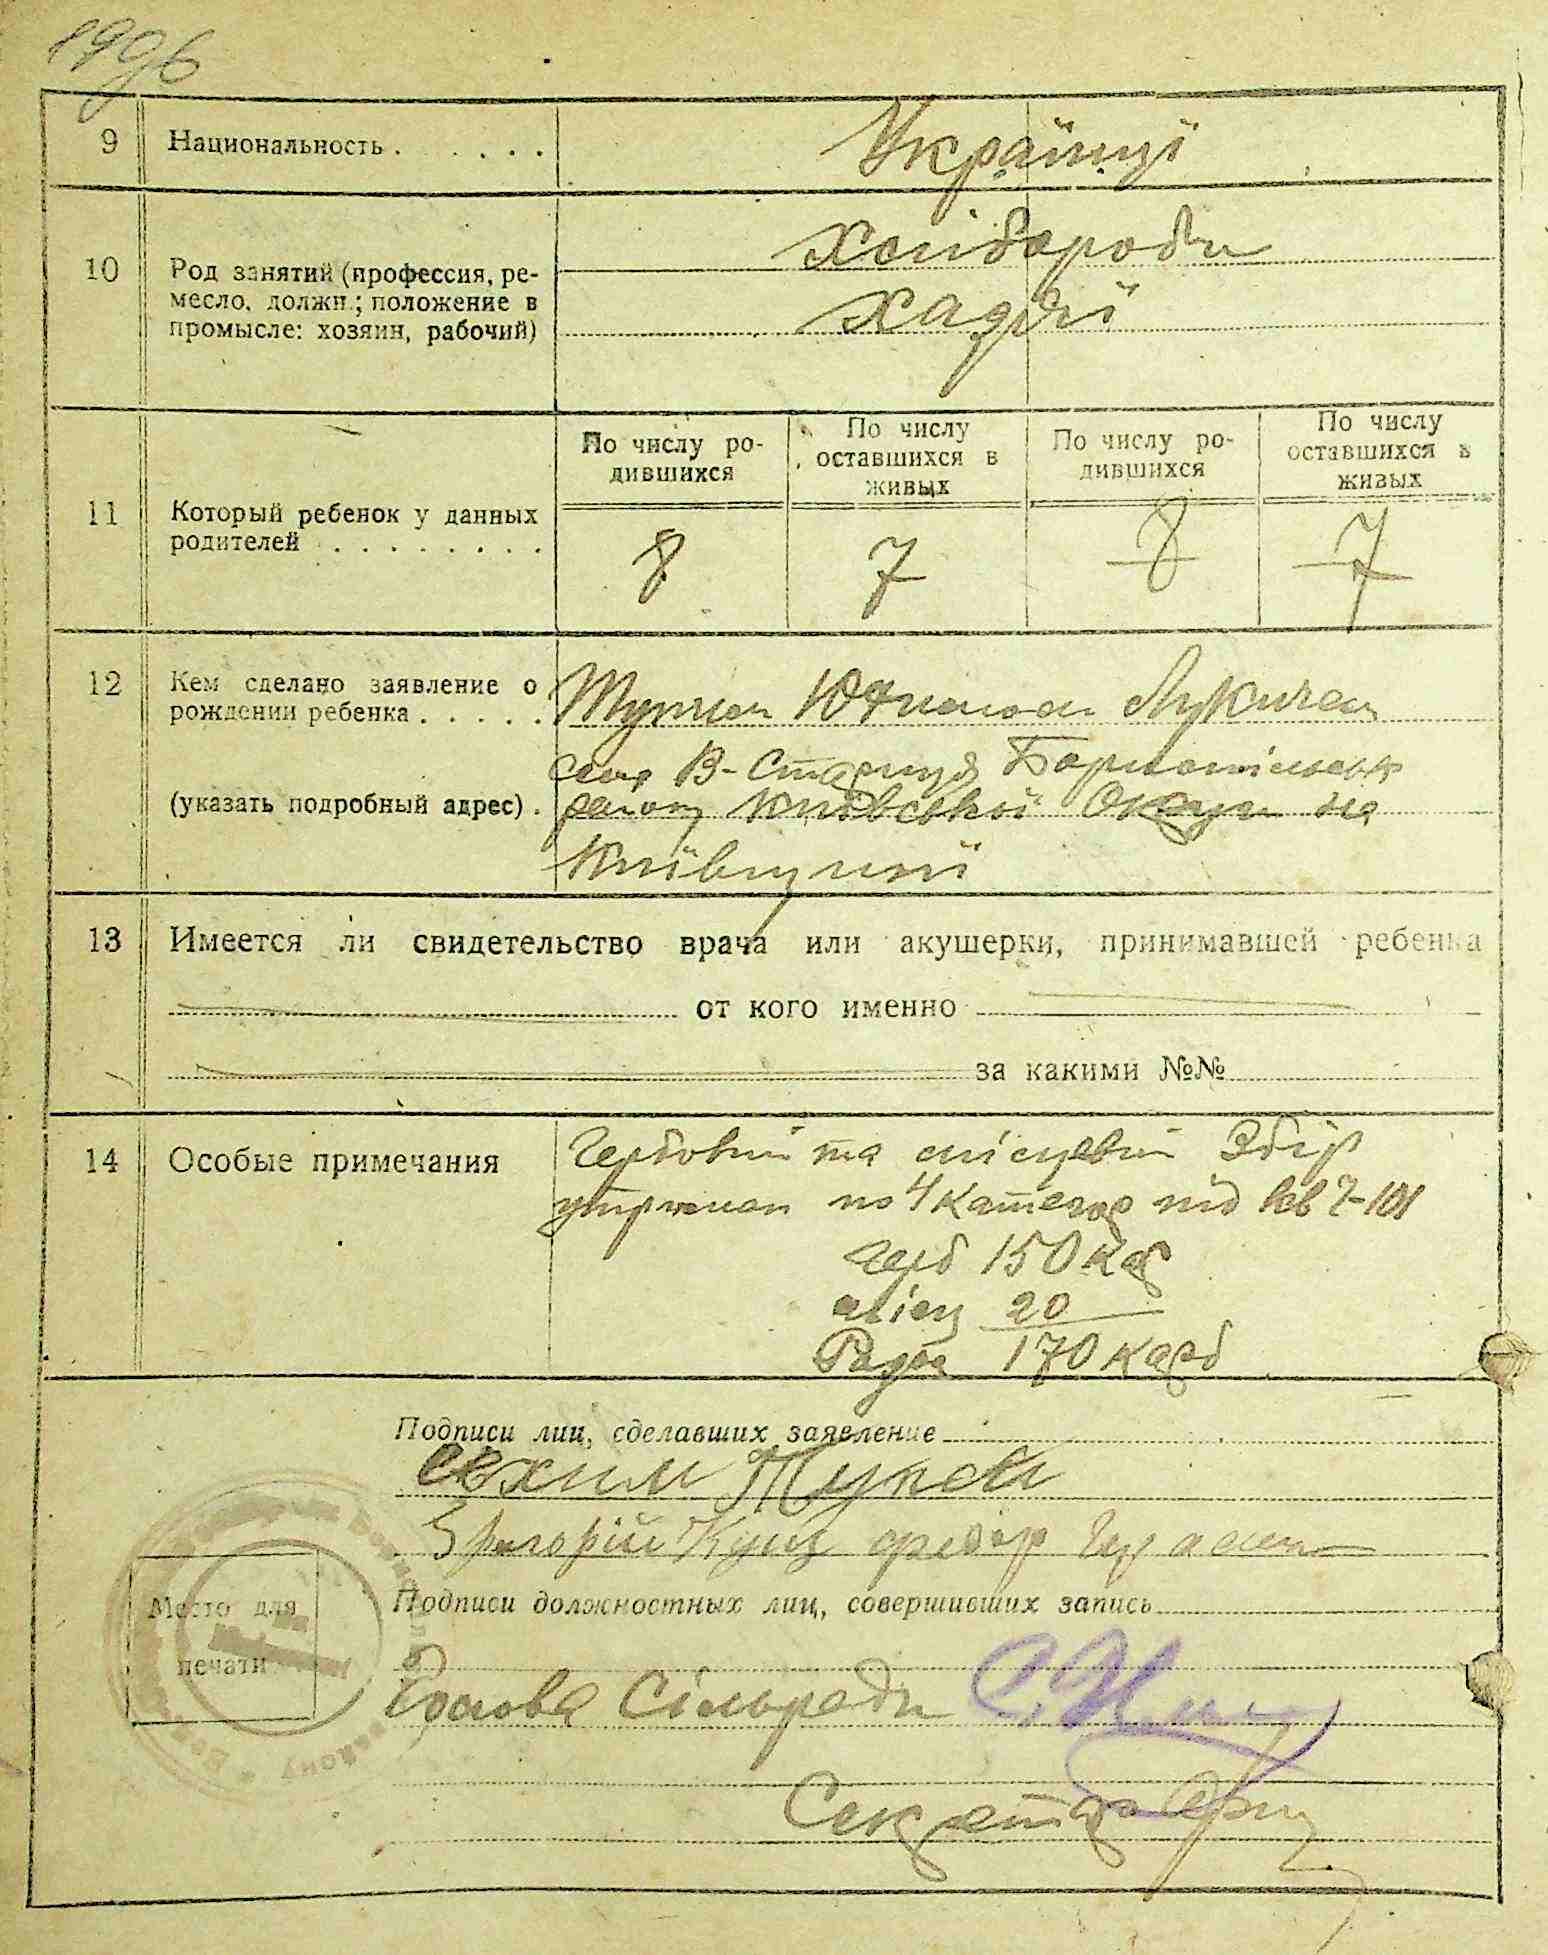 1996
9 Национальность . . . . . .
Українці
10 Род занятий (профессия, ре-
месло, должн.; положение в
промысле: хозяин, рабочий)
Хлібороби
хадяї
11 Который ребенок у данных
родителей . . . . . . . .
По числу ро-
дившихся
По числу
оставшихся в
живых
По числу ро-
дившихся
По числу
оставшихся в
живых
8 7 8 7
12 Кем сделано заявление о
рождении ребенка . . . . .
(указать подробный адрес) .
Лукичем
село В-Стариця
району Київської Округи на
Київщині
13 Имеется ли свидетельство врача или акушерки, принимавшей ребенка
от кого именно
за какими №№
14 Особые примечания
Гербовий та місцевий Збір
по 4 категор під кв 7-101
герб 150 кар
місц 20
Разом 170 карб
Подписи лиц, сделавших заявление
Григорій Куц федор
Подписи должностных лиц, совершивших запись
Место для
печати
Голова Сільради
Секретар